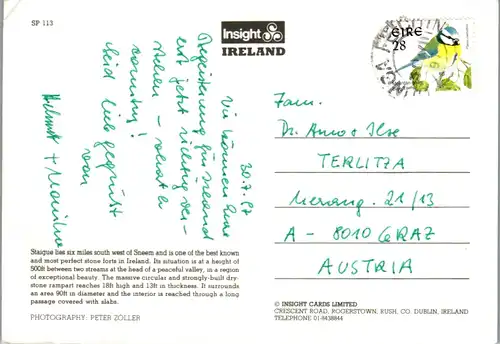 SP 113
Insight
IRELAND
ÉIRE
28
30.7.97
Wir können Eure
Begeisterung für Irland
erst jetzt richtig ver-
stehen - what a
country!
Seid lieb gegrüßt
von
Helmut + Monika
Fam.
Dr. Arno + Ilse
TERLITZA
Merang. 21/13
A - 8010 GRAZ
AUSTRIA
Staigue lies six miles south west of Sneem and is one of the best known
and most perfect stone forts in Ireland. Its situation is at a height of
500ft between two streams at the head of a peaceful valley, in a region
of exceptional beauty. The massive circular and strongly-built dry-
stone rampart reaches 18ft high and 13ft in thickness. It surrounds
an area 90ft in diameter and the interior is reached through a long
passage covered with slabs.
PHOTOGRAPHY: PETER ZÖLLER
© INSIGHT CARDS LIMITED
CRESCENT ROAD, ROGERSTOWN, RUSH, CO. DUBLIN, IRELAND
TELEPHONE 01-8438844